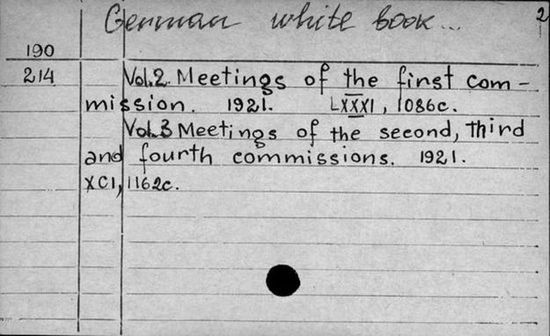 German white book...
2
190
214
Vol.2. Meetings of the first com-
mission. 1921. LXXXI, 1086c.
Vol.3 Meetings of the second, third
and fourth commissions. 1921.
XCI, 1162c.